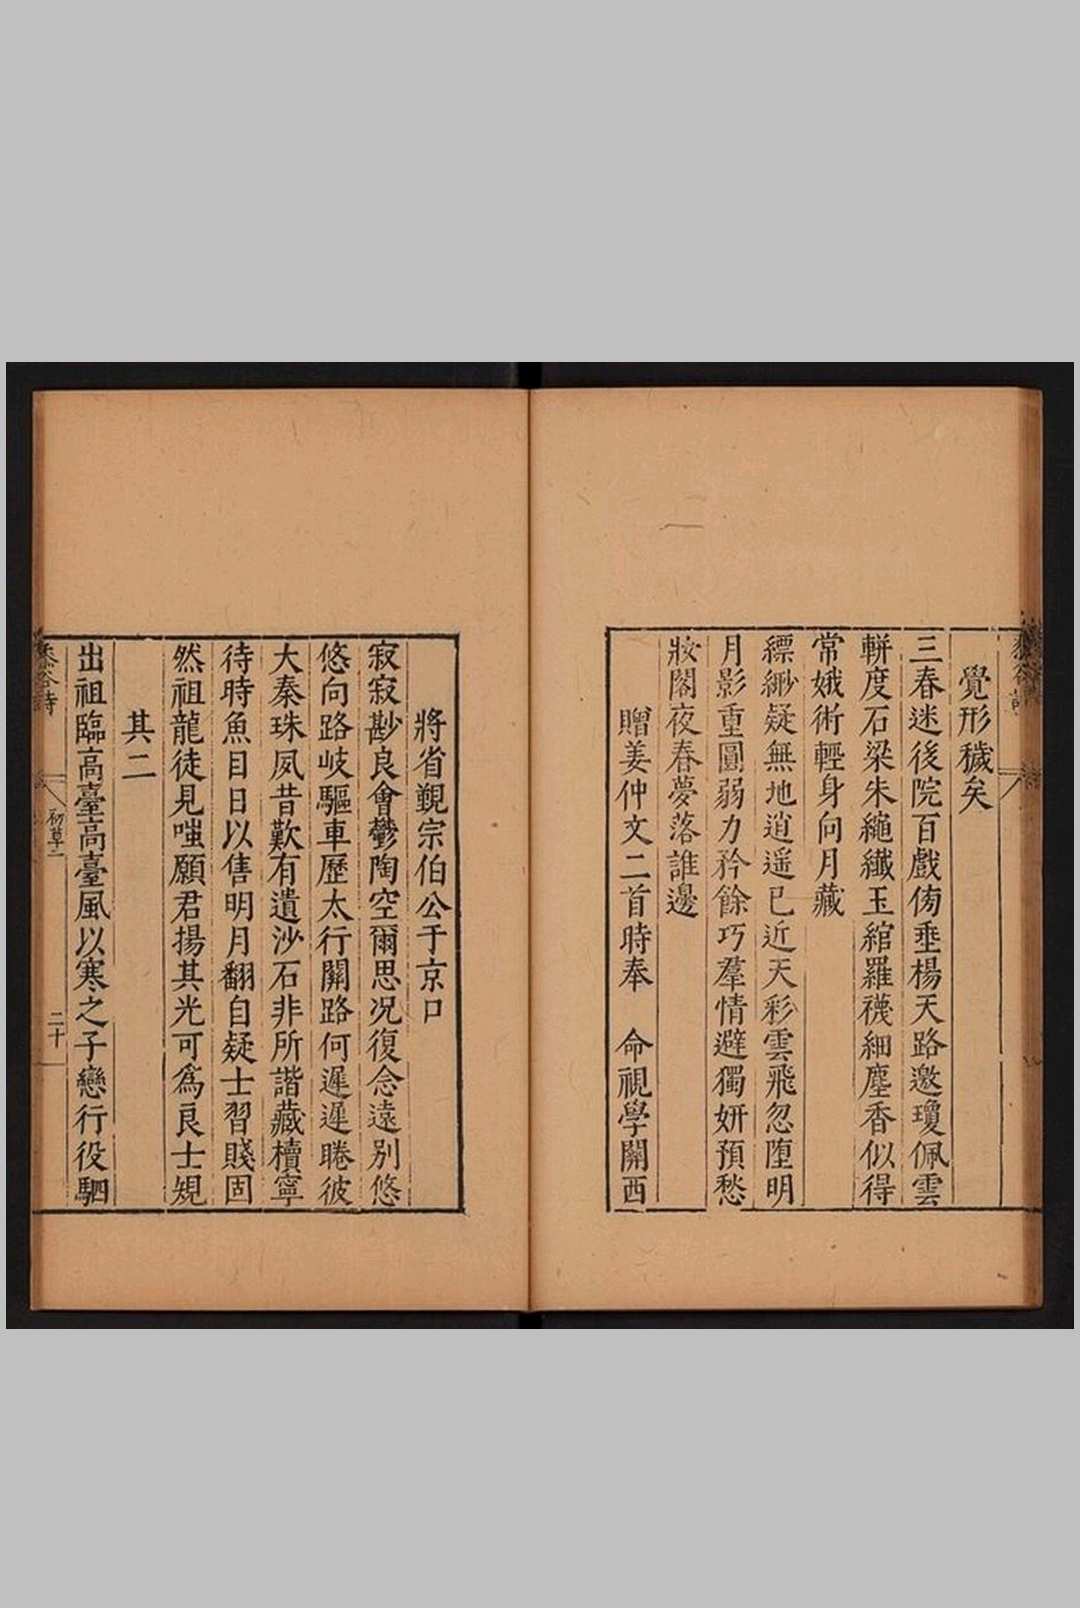 覺形穢矣
三春迷後院百戲傍垂楊天路邀瓊佩雲
軿度石梁朱繩纖玉綰羅襪細塵香似得
常娥術輕身向月藏
縹緲疑無地逍遥已近天彩雲飛忽墮明
月影重圓弱力矜餘巧羣情避獨妍預愁
妝閣夜春夢落誰邊
贈姜仲文二首時奉 命視學關西
將省覲宗伯公于京口
寂寂尠良會鬱陶空爾思况復念遠别悠
悠向路岐驅車歷太行關路何遲遲睠彼
大秦珠夙昔歎有遺沙石非所諧藏櫝寧
待時魚目日以售明月翻自疑士習賤固
然祖龍徒見嗤願君揚其光可為良士規
其二
出祖臨高臺高臺風以寒之子戀行役駟
黍谷詩
初草二
二十